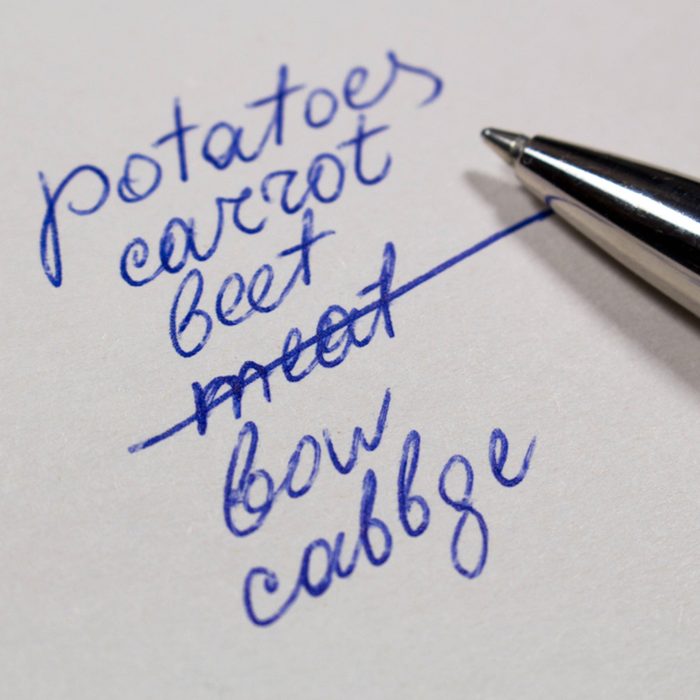 potatoes
carrot
beet
meat
bow
cabbge